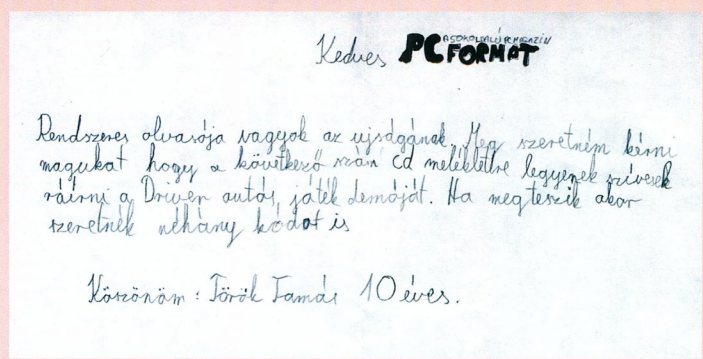 Kedves PC FORMAT A SOKOLDALÚ PC MAGAZIN
Rendszeres olvasója vagyok az ujságának. Meg szeretném kérni
magukat hogy a következő szám cd mellékletre legyenek szívesek
ráírni a Driver autós játék demóját. Ha megteszik akor
szeretnék néhány kódot is
Köszönöm: Török Tamás 10 éves.